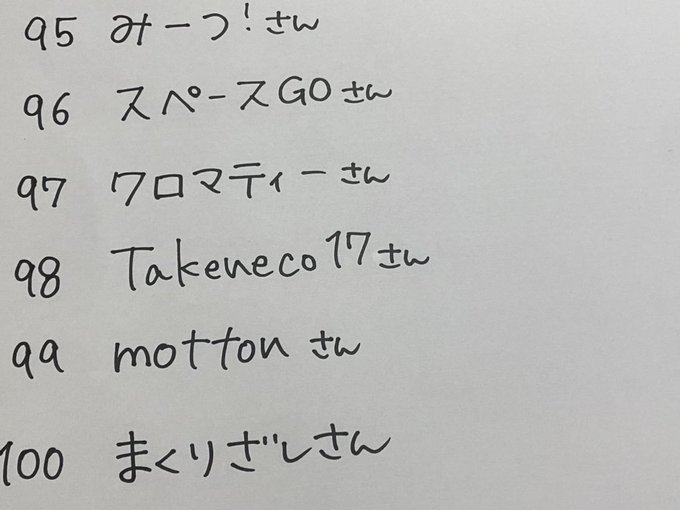 95 みーつ!さん
96 スペースGOさん
97 クロマティーさん
98 Takeneco17さん
99 mottonさん
100 まくりざしさん